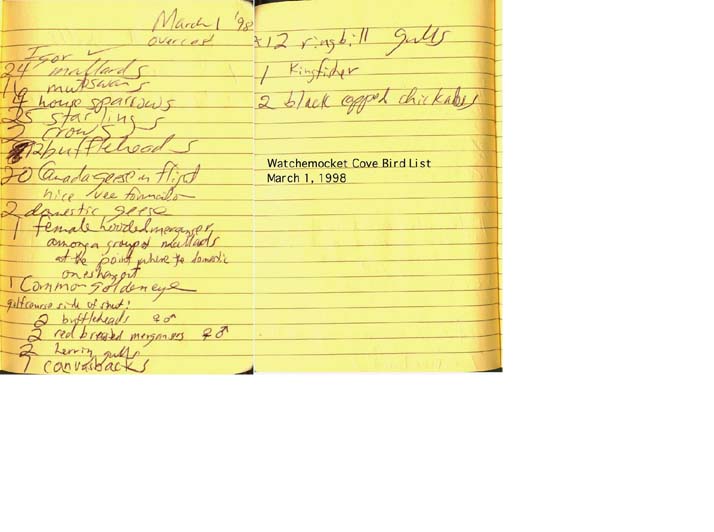 March 1 '98
overcast
Igor ✓
24 mallards
16 mute swans
4 house sparrows
25 starlings
2 crows
12 buffleheads
20 Canada geese in flight
nice vee formation
2 domestic geese
1 female hooded merganser,
among a group of mallards
at the point where the domestic
ones hang out
1 Common goldeneye
golf course side of
2 buffleheads ♀♂
2 red breasted mergansers ♀♂
2 herrin gulls
7 canvasbacks
12 ringbill gulls
1 Kingfisher
2 black capped chickadees
Watchemocket Cove Bird List
March 1, 1998